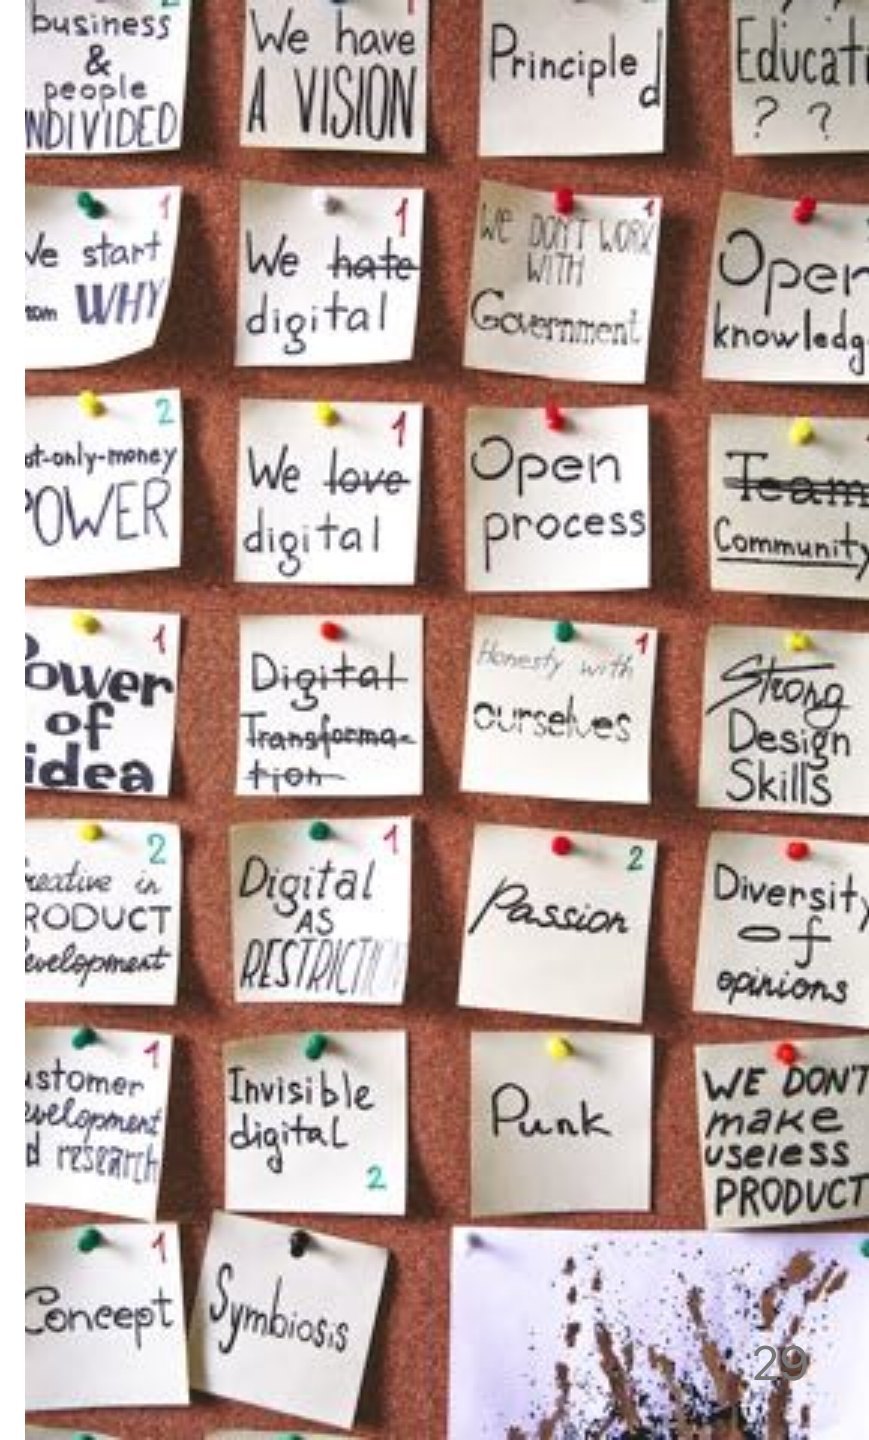 2
business
&
people
NDIVIDED
1
We have
A VISION
Principled
? ?
Educati
? ?
1
We start
WHY
1
We hate
digital
1
WE DON'T WORK
WITH
Government
Open
knowledg
2
ot-only-money
POWER
1
We love
digital
Open
process
Team
Community
1
Power
of
idea
Digital
Transforma-
tion
1
Honesty with
ourselves
Strong
Design
Skills
2
reative in
RODUCT
evelopment
1
Digital
AS
RESTRICTION
2
Passion
Diversity
of
opinions
1
ustomer
evelopment
d research
Invisible
digital
2
Punk
WE DON'T
make
useless
PRODUCT
1
Concept
Symbiosis
29